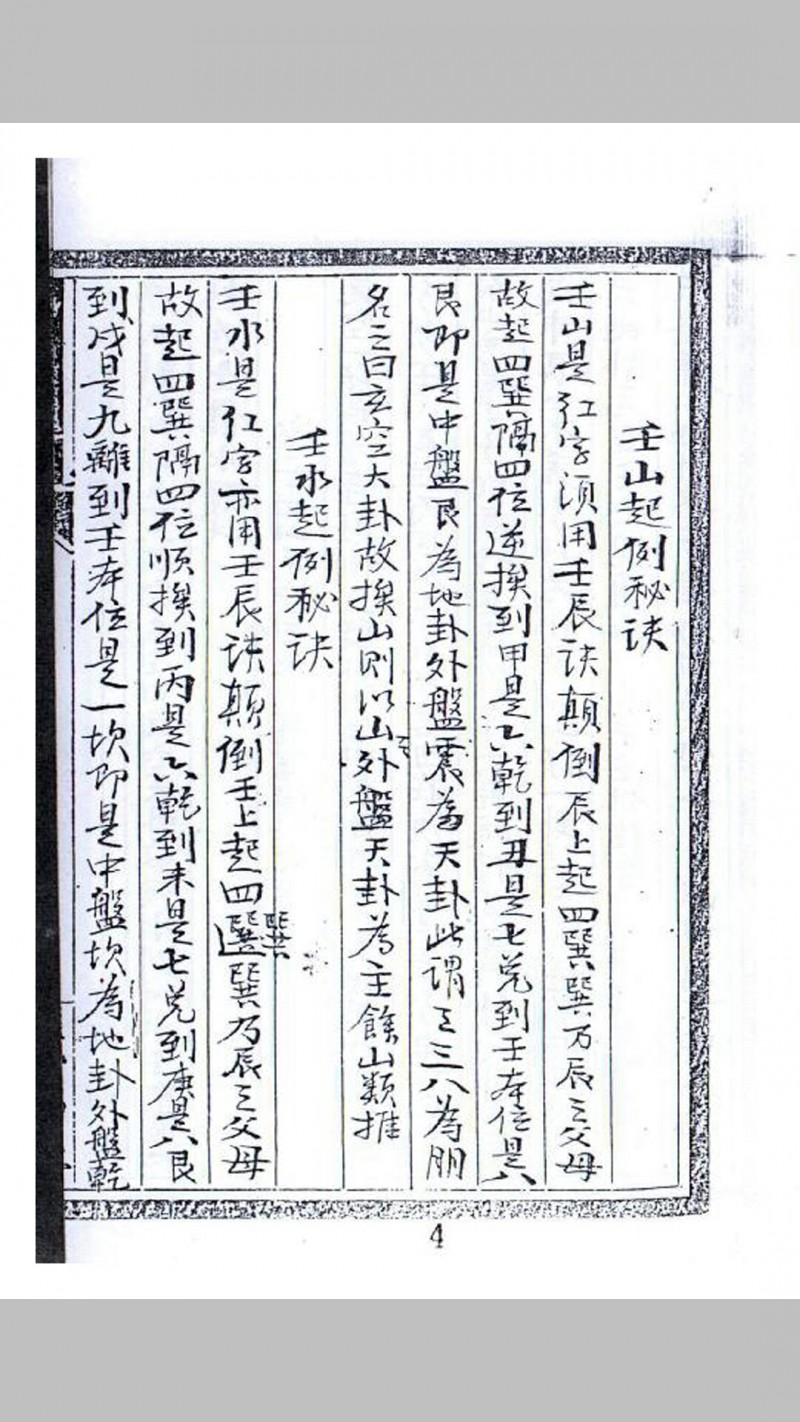 壬山起例秘诀
壬山是红字须用壬辰诀颠倒辰上起四巽巽乃辰之父母
故起四巽隔四位逆挨到甲是六乾到丑是七兑到壬本位是八
艮即是中盤艮為地卦外盤震為天卦此谓之三八為朋
名之曰玄空大卦故挨山则以山外盤天卦為主餘山類推
壬水起例秘诀
壬水是红字亦用壬辰诀颠倒壬上起四巽巽乃辰之父母
故起四巽隔四位顺挨到丙是六乾到未是七兑到庚是八艮
到戌是九離到壬本位是一坎即是中盤坎為地卦外盤乾
4